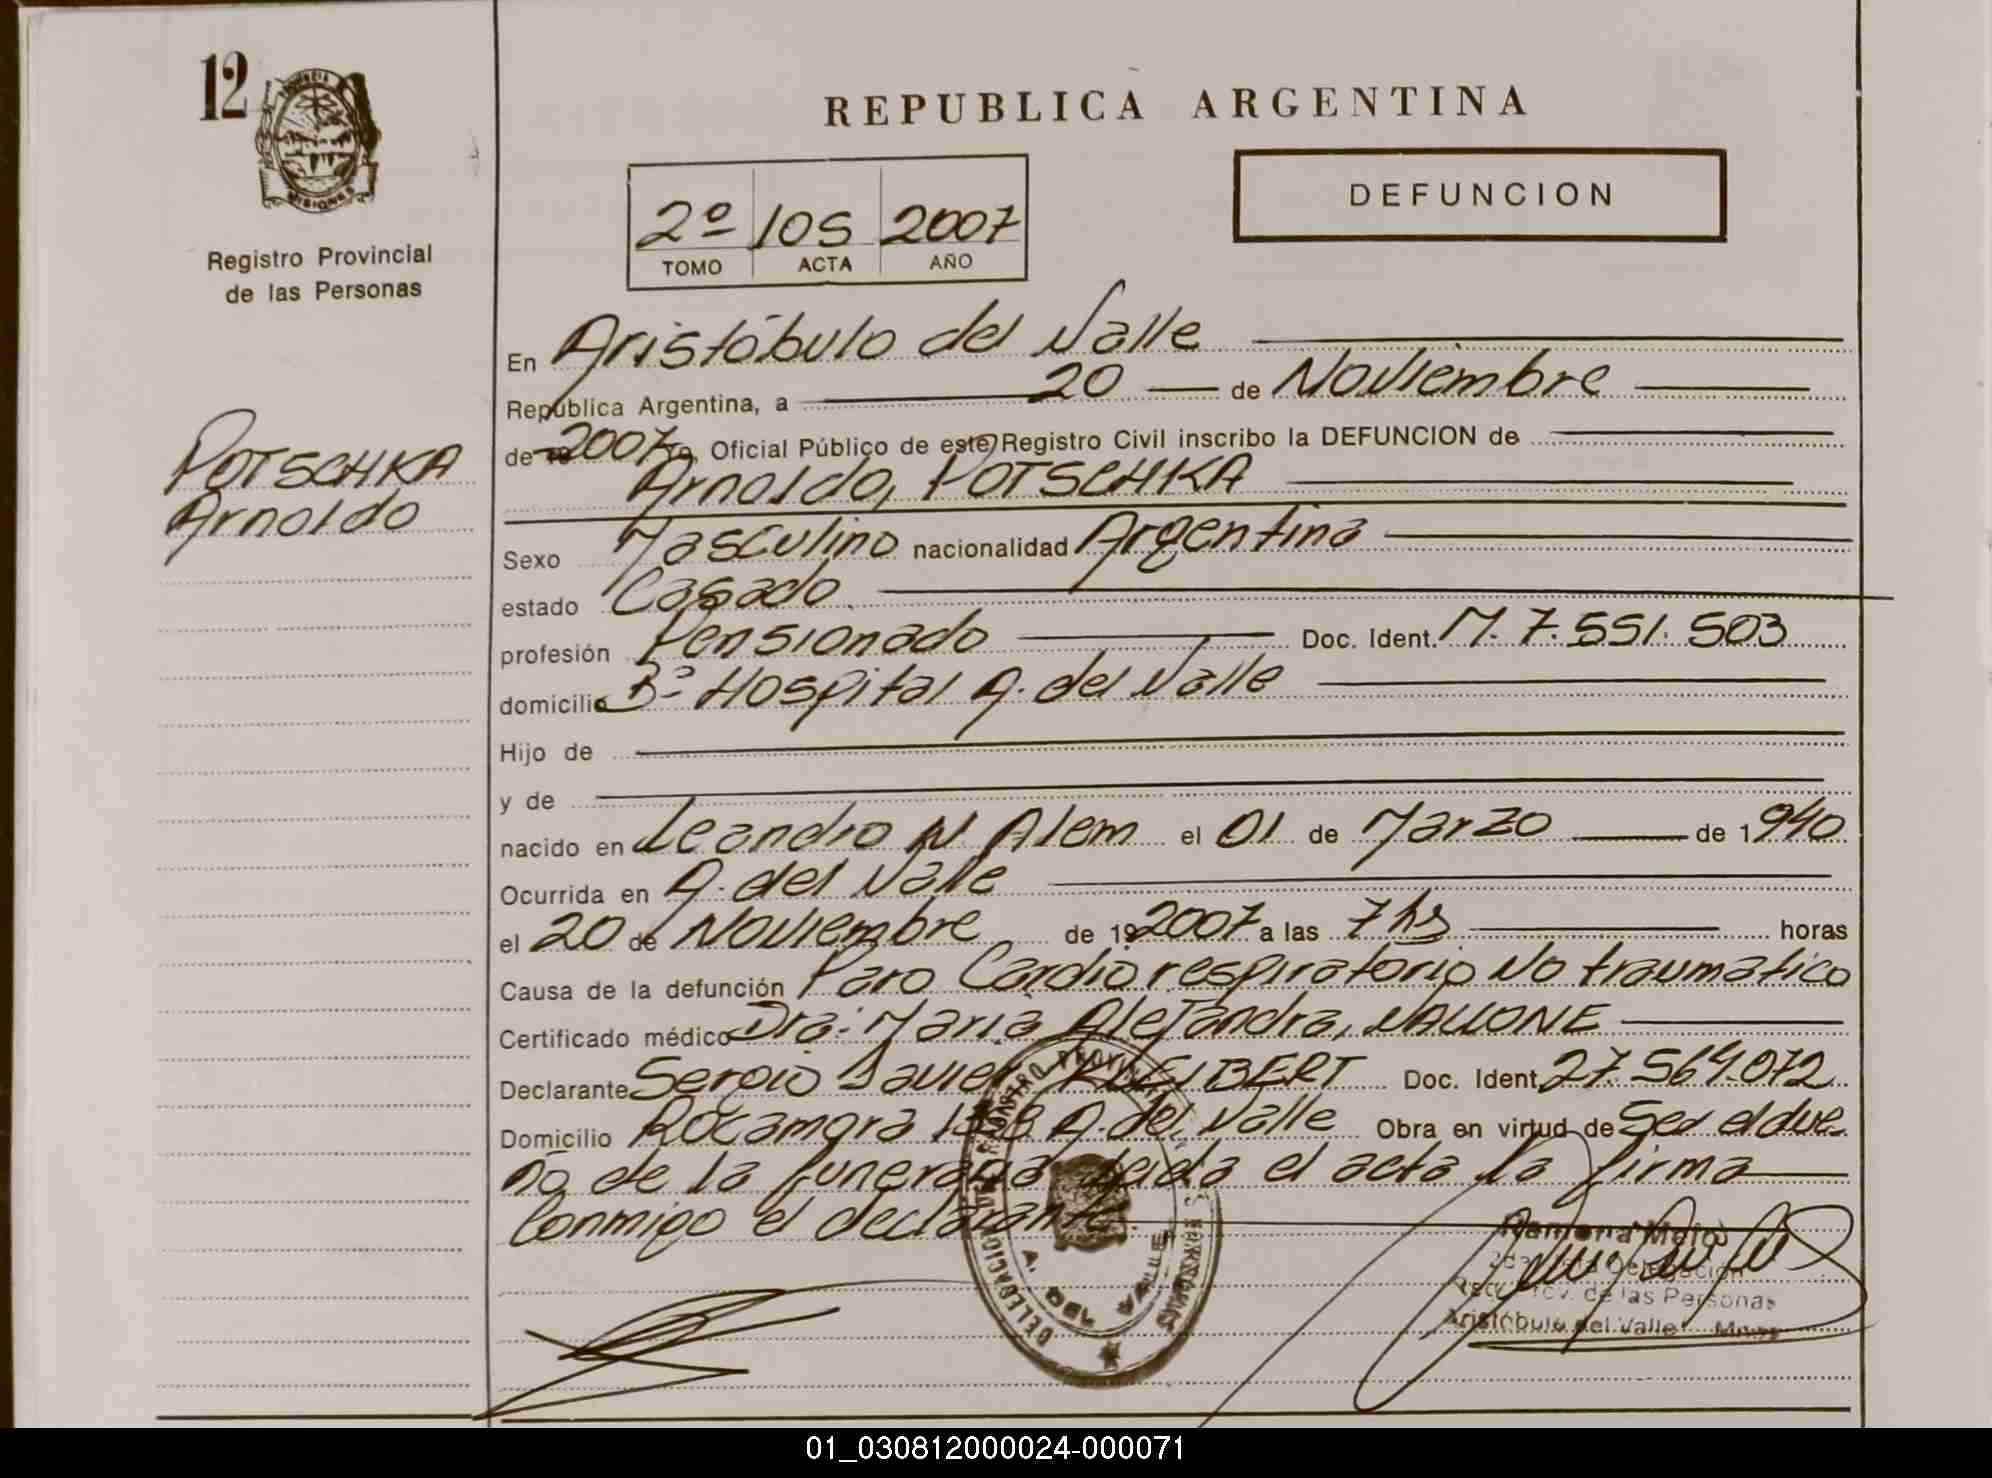 12
PROVINCIA DE
MISIONES
Registro Provincial
de las Personas
REPUBLICA ARGENTINA
2º 105 2007
TOMO ACTA AÑO
DEFUNCION
POTSCHKA
Arnoldo
En Aristóbulo del Valle
República Argentina, a 20 de Noviembre
de 2007 Yo Oficial Público de este Registro Civil inscribo la DEFUNCION de
Arnoldo, POTSCHKA
Sexo Masculino nacionalidad Argentina
estado Casado
profesión Pensionado Doc. Ident. M. 7.551.503
domicilio Bº Hospital A. del Valle
Hijo de
y de
nacido en Leandro N. Alem el 01 de Marzo de 1940
Ocurrida en A. del Valle
el 20 de Noviembre de 19 2007 a las 7 hs horas
Causa de la defunción Paro Cardiorespiratorio No traumatico
Certificado médico Dra. Maria Alejandra, NALLONE
Declarante Sergio Javier Doc. Ident. 27.564.072
Domicilio Rocamora A. del Valle Obra en virtud de Ser el due
ño de la funeraria leida el acta la firma
Conmigo el declarante.
DELEGACION REGISTRO PROVINCIAL
A. DEL VALLE
Ramona
Delegación
Prov. de las Personas
Aristóbulo del Valle Mnes
01_030812000024-000071